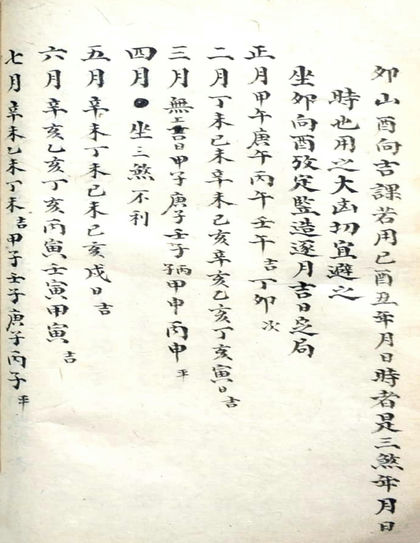 卯山酉向吉課若用巳酉丑年月日時者是三煞年月日
時也用之大凶切宜避之
坐卯向酉攷定監造逐月吉日之局
正月甲午庚午丙午壬午吉丁卯次
二月丁未己未辛未己亥辛亥乙亥丁亥寅日吉
三月無上吉日甲子庚子壬子丙子甲申丙申平
四月●坐三煞不利
五月辛未丁未己未己亥戌日吉
六月辛亥乙亥丁亥丙寅壬寅甲寅吉
七月辛未乙未丁未吉甲子壬子庚子丙子平